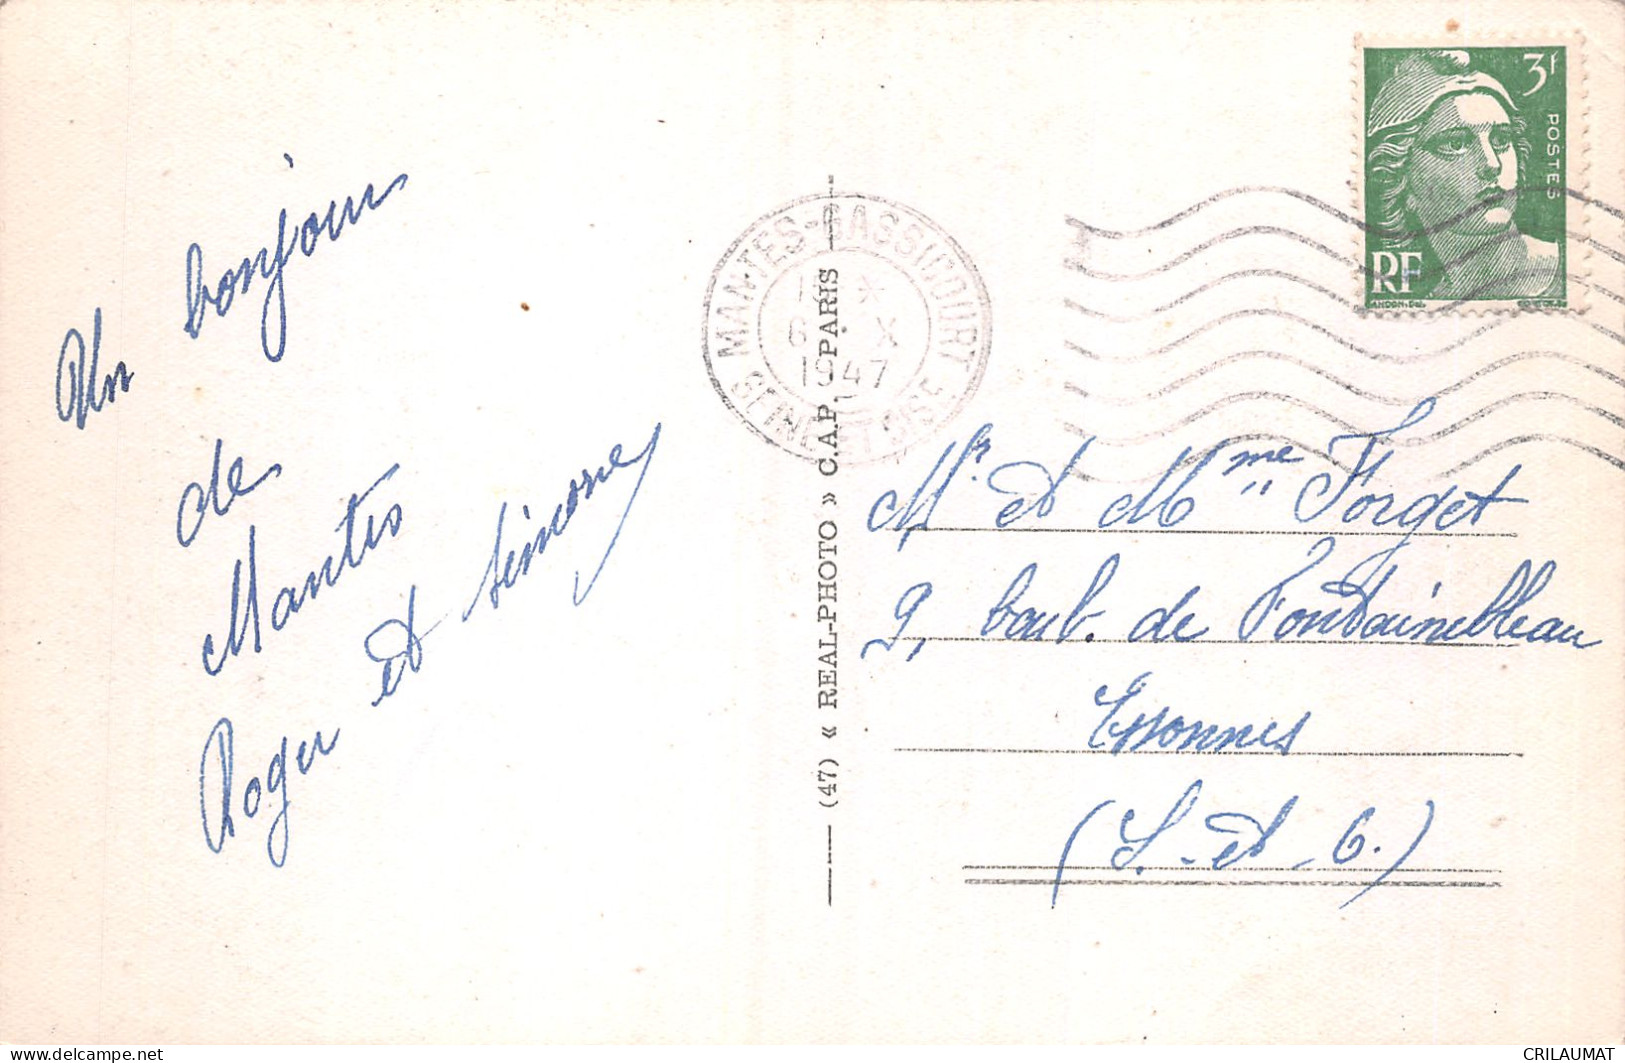 Un bonjour
de
Mantes
Roger et Simone
(47) « REAL-PHOTO » C.A.P. - PARIS
MANTES-GASSICOURT
1947
SEINE ET OISE
3f
POSTES
RF
GANDON.Del.
Mr et Mme Forget
9, boul. de Fontainebleau
Essonnes
(S.-et-O.)
delcampe.net
CRILAUMAT